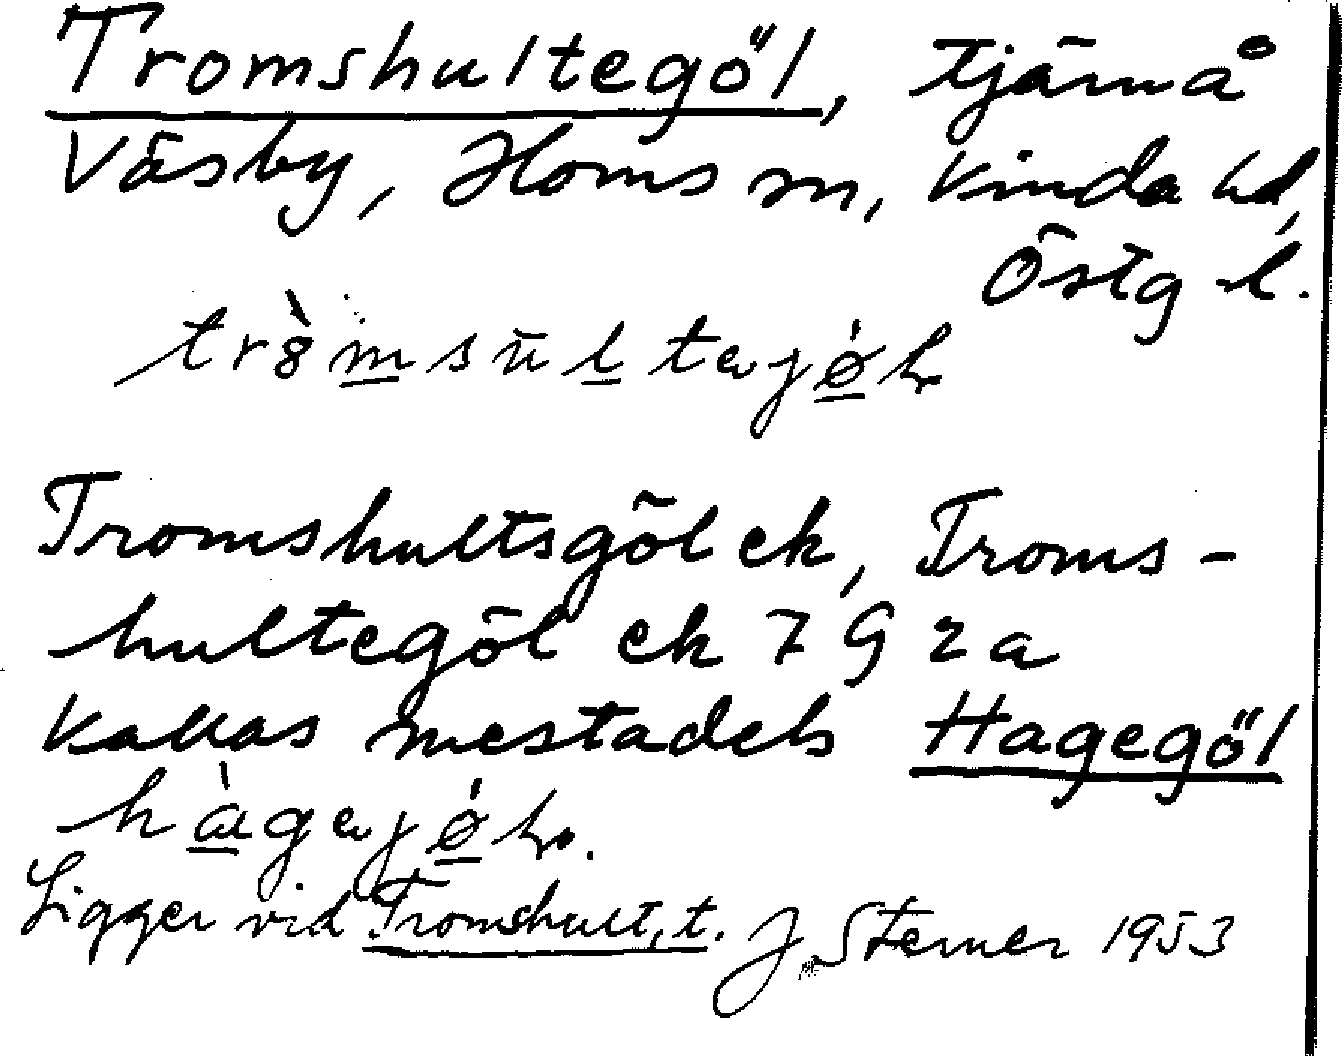 Tromshultegöl, tjärn å
Väsby, Horns sn, Kinda hd,
Östg l.
Tromshultsgöl ek, Troms-
hultegöl ek 7 G 2 a
Kallas mestadels Hagegöl
Ligger vid Tromshult, t. J. Sterner 1953